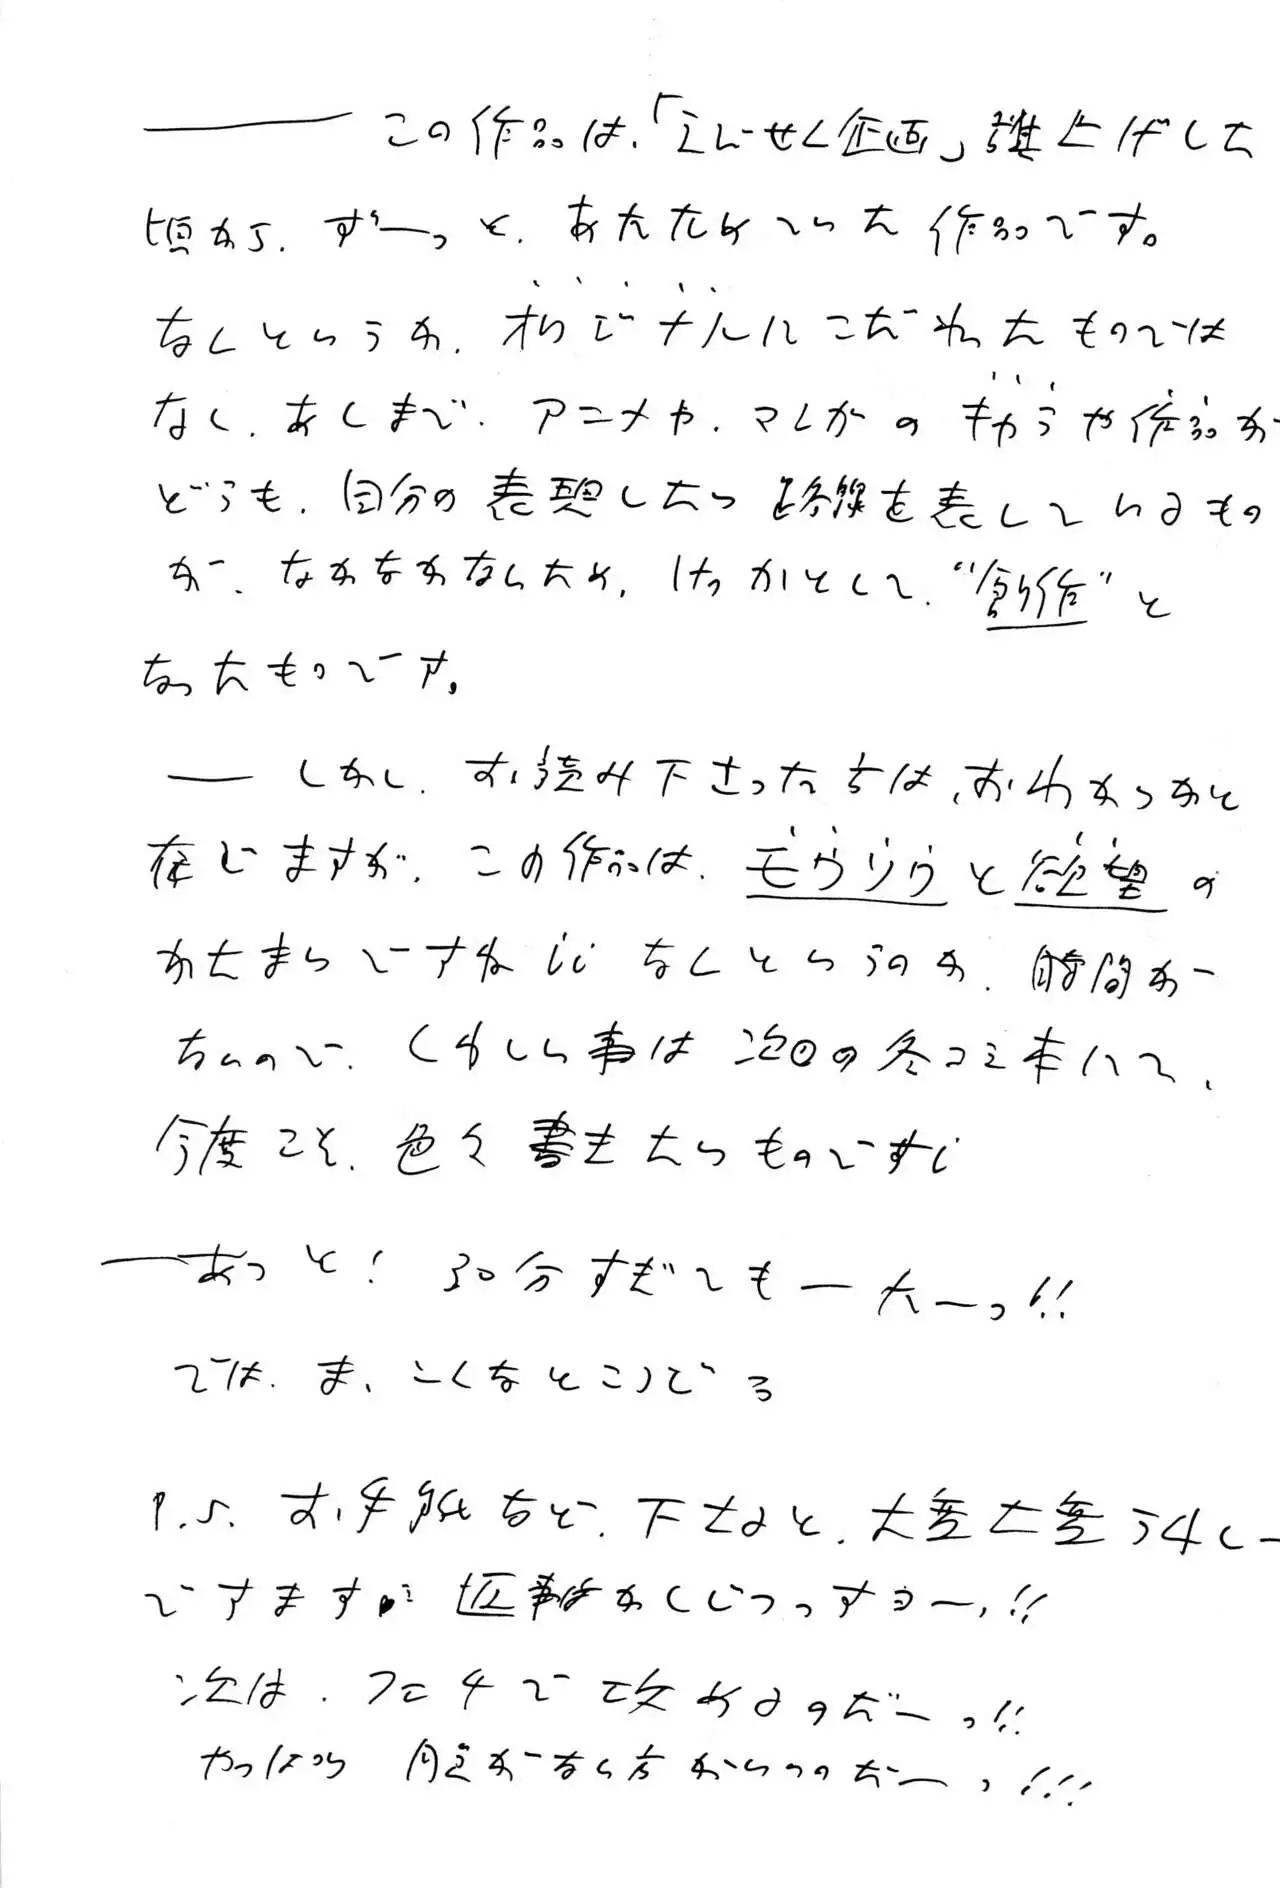 この作品は、「えんせく企画」旗上げした
頃から、ずーっと、あたためていた作品です。
なんというか、オリジナルにこだわったものでは
なく、あくまで、アニメや、マンガのキャラや作品が
どうも、自分の表現したい路線を表しているもの
が、なかなかないため、けっかとして、"創作"と
なったものです。
しかし、お読み下さった方は、おわかりかと
存じますが、この作品は、モウソウと欲望の
かたまりですねii なんというのか、時間が
ないので、くわしい事は次回の冬コミ本にて、
今度こそ、色々書きたいものですi
あっと! 30分すぎてもーたーっ!!
では、ま、こんなところでる
P.S. お手紙など、下さると、大変大変うれしー
でアます。返事はかくじつっすョー、!!
次は、フェチで攻めるのだーっ!!
やっぱり 自信がない方がいいのだーっ!!!